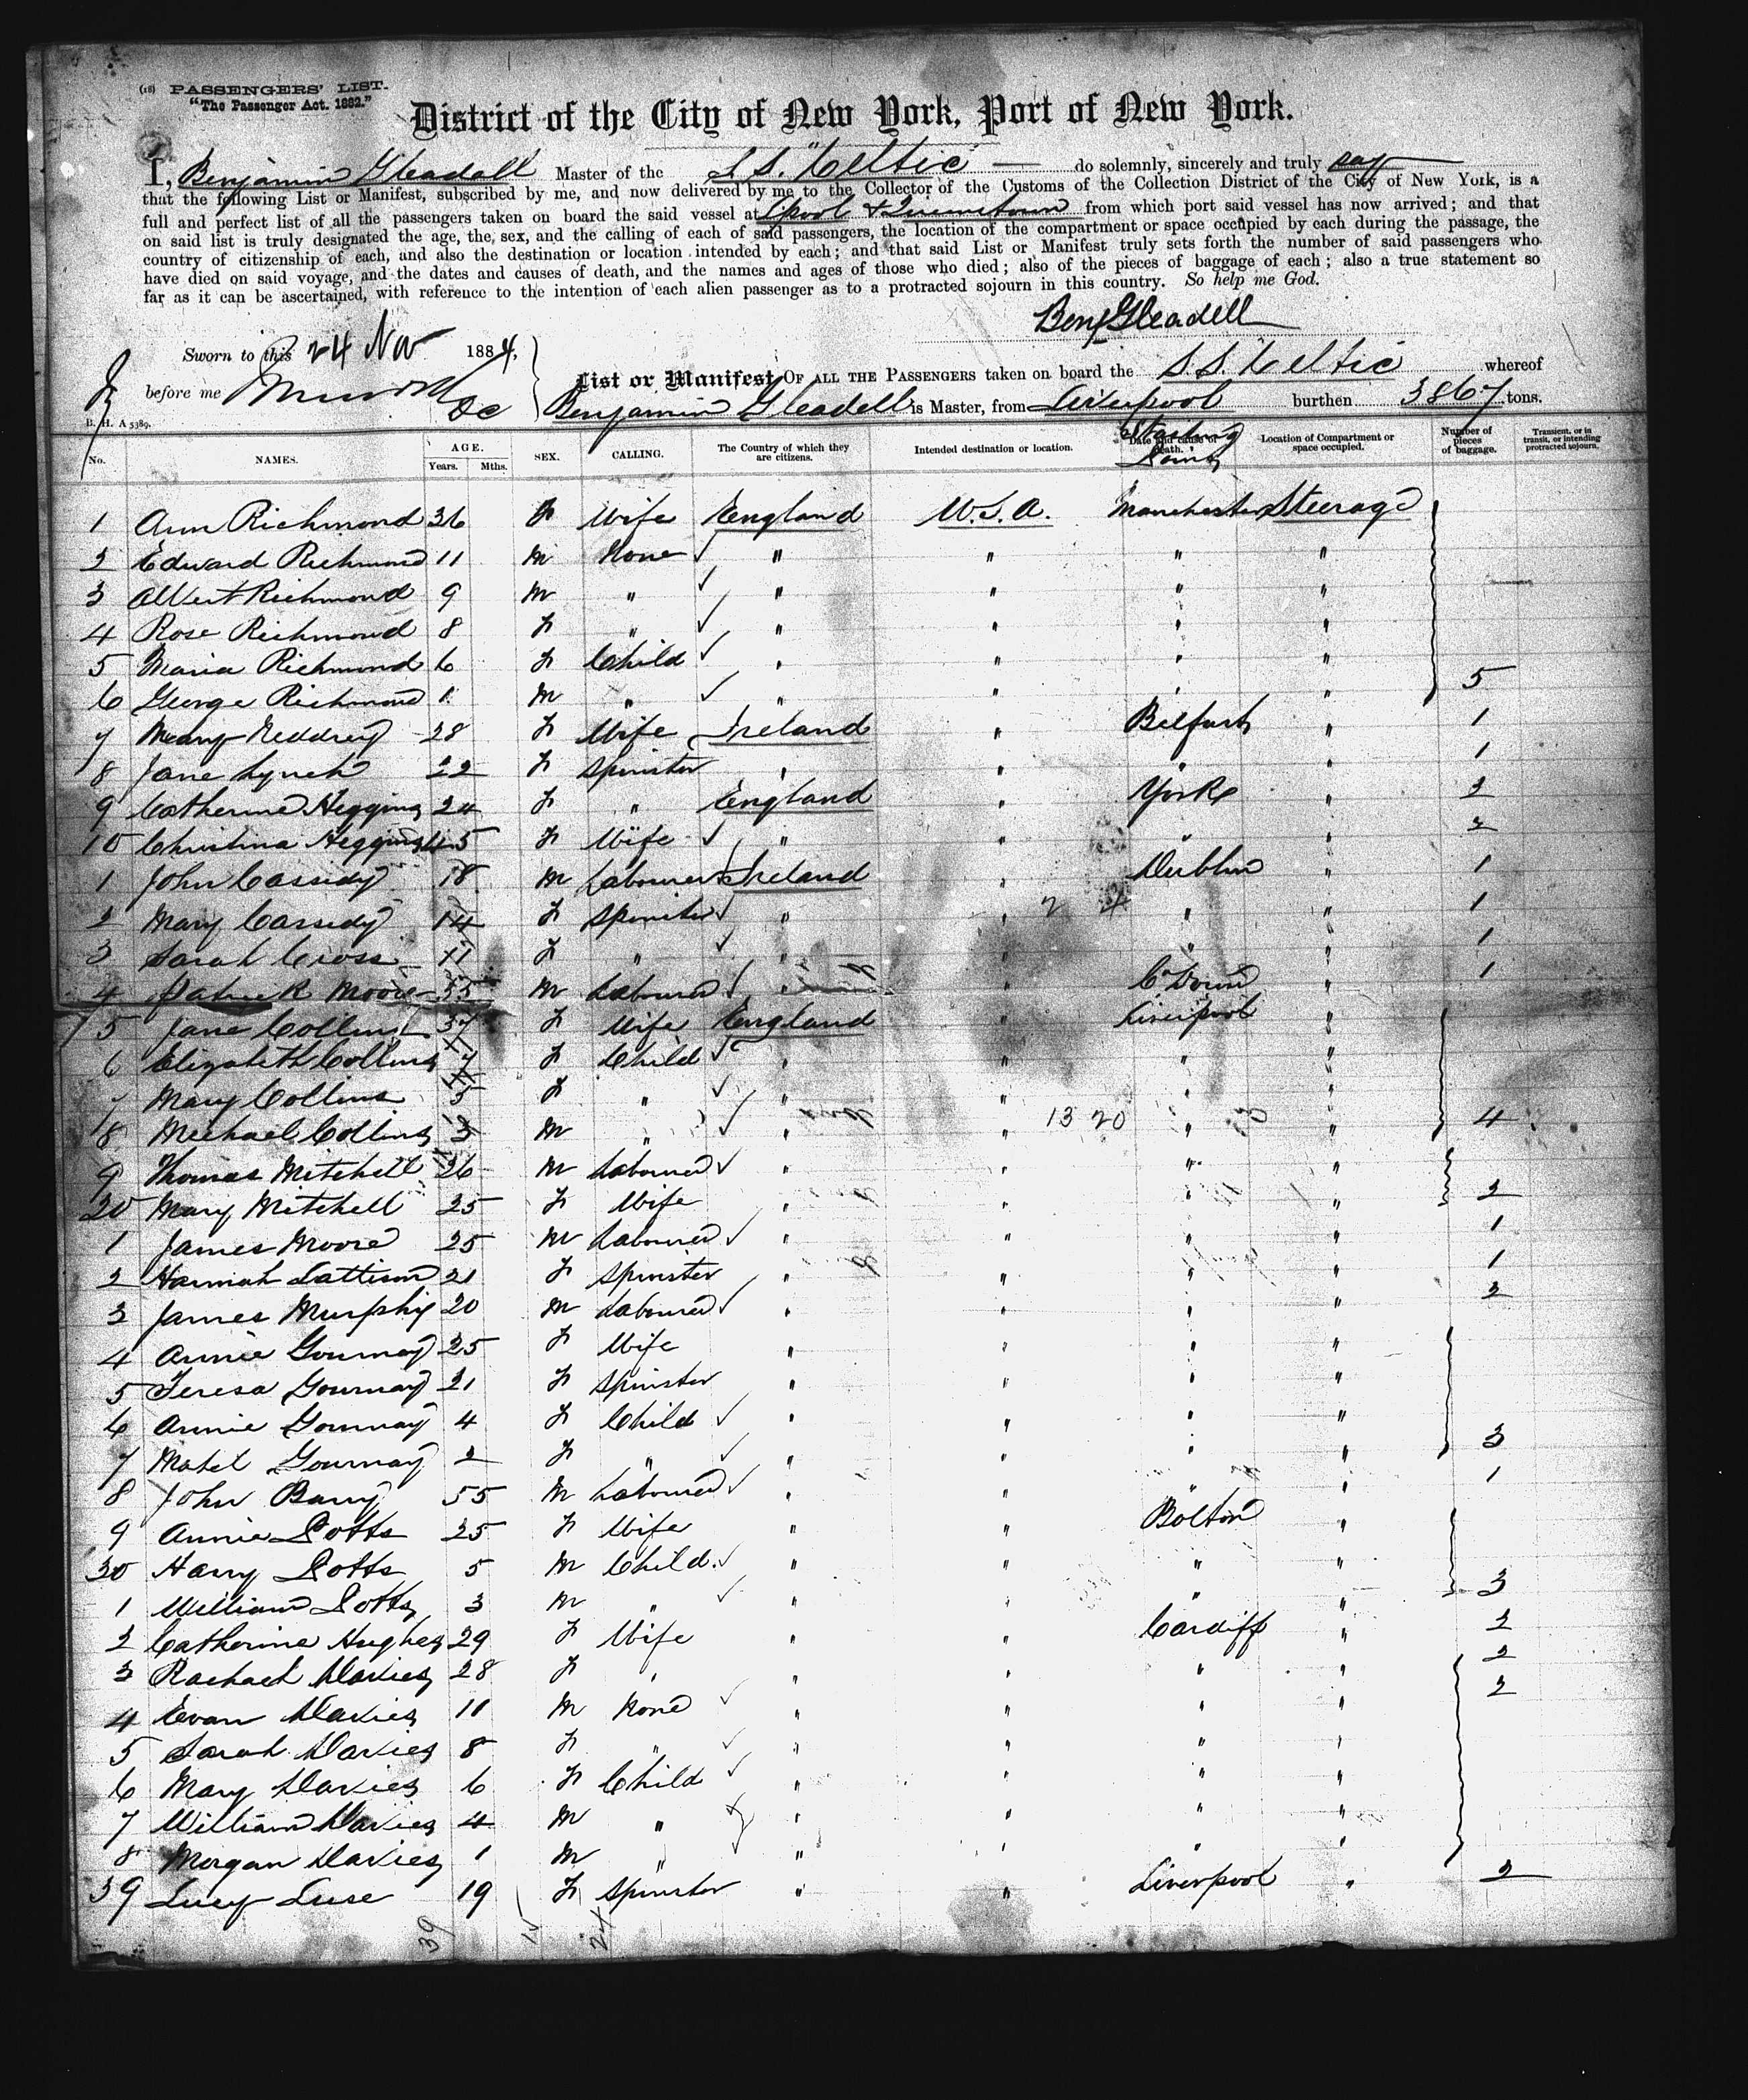 (18) PASSENGERS' LIST.
"The Passenger Act. 1882."
District of the City of New York, Port of New York.
I, Benjamin Gleadell Master of the S.S. "Celtic" do solemnly, sincerely and truly say
that the following List or Manifest, subscribed by me, and now delivered by me to the Collector of the Customs of the Collection District of the City of New York, is a
full and perfect list of all the passengers taken on board the said vessel at L'pool & Queenstown from which port said vessel has now arrived; and that
on said list is truly designated the age, the sex, and the calling of each of said passengers, the location of the compartment or space occupied by each during the passage, the
country of citizenship of each, and also the destination or location intended by each; and that said List or Manifest truly sets forth the number of said passengers who
have died on said voyage, and the dates and causes of death, and the names and ages of those who died; also of the pieces of baggage of each; also a true statement so
far as it can be ascertained, with reference to the intention of each alien passenger as to a protracted sojourn in this country. So help me God.
Benj Gleadell
Sworn to this 24 Nov 1884,
before me
DC
List or Manifest OF ALL THE PASSENGERS taken on board the S.S. Celtic whereof
Benjamin Gleadell is Master, from Liverpool burthen 3867 tons.
B. H. A 5389.
No. NAMES. AGE. Years. Mths. SEX. CALLING. The Country of which they are citizens. Intended destination or location. Date and cause of death. Starting Point Location of Compartment or space occupied. Number of pieces of baggage. Transient, or in transit, or intending protracted sojourn.
1 Ann Richmond 36 F Wife England U.S.A. Manchester Steerage
2 Edward Richmond 11 M None " " " "
3 Albert Richmond 9 M " " " " "
4 Rose Richmond 8 F " " " " "
5 Maria Richmond 6 F Child " " " "
6 George Richmond 1 M " " " " " 5
7 Mary 28 F Wife Ireland " Belfast " 1
8 Jane Lynch 22 F Spinster " " " " 1
9 Catherine Heggins 24 F " England " York " 2
10 Christina Heggins 45 F Wife " " " " 2
1 John Cassidy 18 M Labourer Ireland " Dublin " 1
2 Mary Cassidy 14 F Spinster " " " " 1
3 Sarah Cross 17 F " " " " " 1
4 Patrick Moore 55 M Labourer " " Co Down " 1
15 Jane Collins 37 F Wife England " Liverpool "
6 Elizabeth Collins 7 F Child " " " "
7 Mary Collins 5 F " " " " "
18 Michael Collins 3 M " " " 13 20 " " 4
9 Thomas Mitchell 26 M Labourer " " " "
20 Mary Mitchell 25 F Wife " " " " 2
1 James Moore 25 M Labourer " " " " 1
2 Hannah 21 F Spinster " " " " 1
3 James Murphy 20 M Labourer " " " " 2
4 Annie Gournay 25 F Wife " " " "
5 Teresa Gournay 21 F Spinster " " " "
6 Annie Gournay 4 F Child " " " "
7 Mabel Gournay 2 F " " " " " 3
8 John Barry 55 M Labourer " " " " 1
9 Annie Potts 25 F Wife " " Bolton "
30 Harry Potts 5 M Child " " " "
1 William Potts 3 M " " " " " 3
2 Catherine Hughes 29 F Wife " " Cardiff " 2
3 Rachael Davies 28 F " " " " " 2
4 Evan Davies 11 M None " " " " 2
5 Sarah Davies 8 F " " " " "
6 Mary Davies 6 F Child " " " "
7 William Davies 4 M " " " " "
8 Morgan Davies 1 M " " " " "
39 Lucy Luse 19 F Spinster " " Liverpool " 2
39 15 24